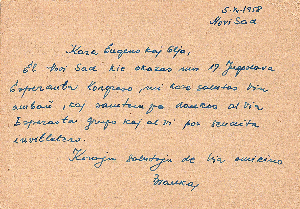 5-IX-1958
Novi Sad
Kara Eugeno kaj
El Novi Sad kie okazas nun 17 Jugoslava
Esperanta Kongreso, mi kore salutas vin
ambaŭ, kaj samtempe dankas al via
Esperanto grupo kaj al vi por sendita
Korajn salutojn de via amikino